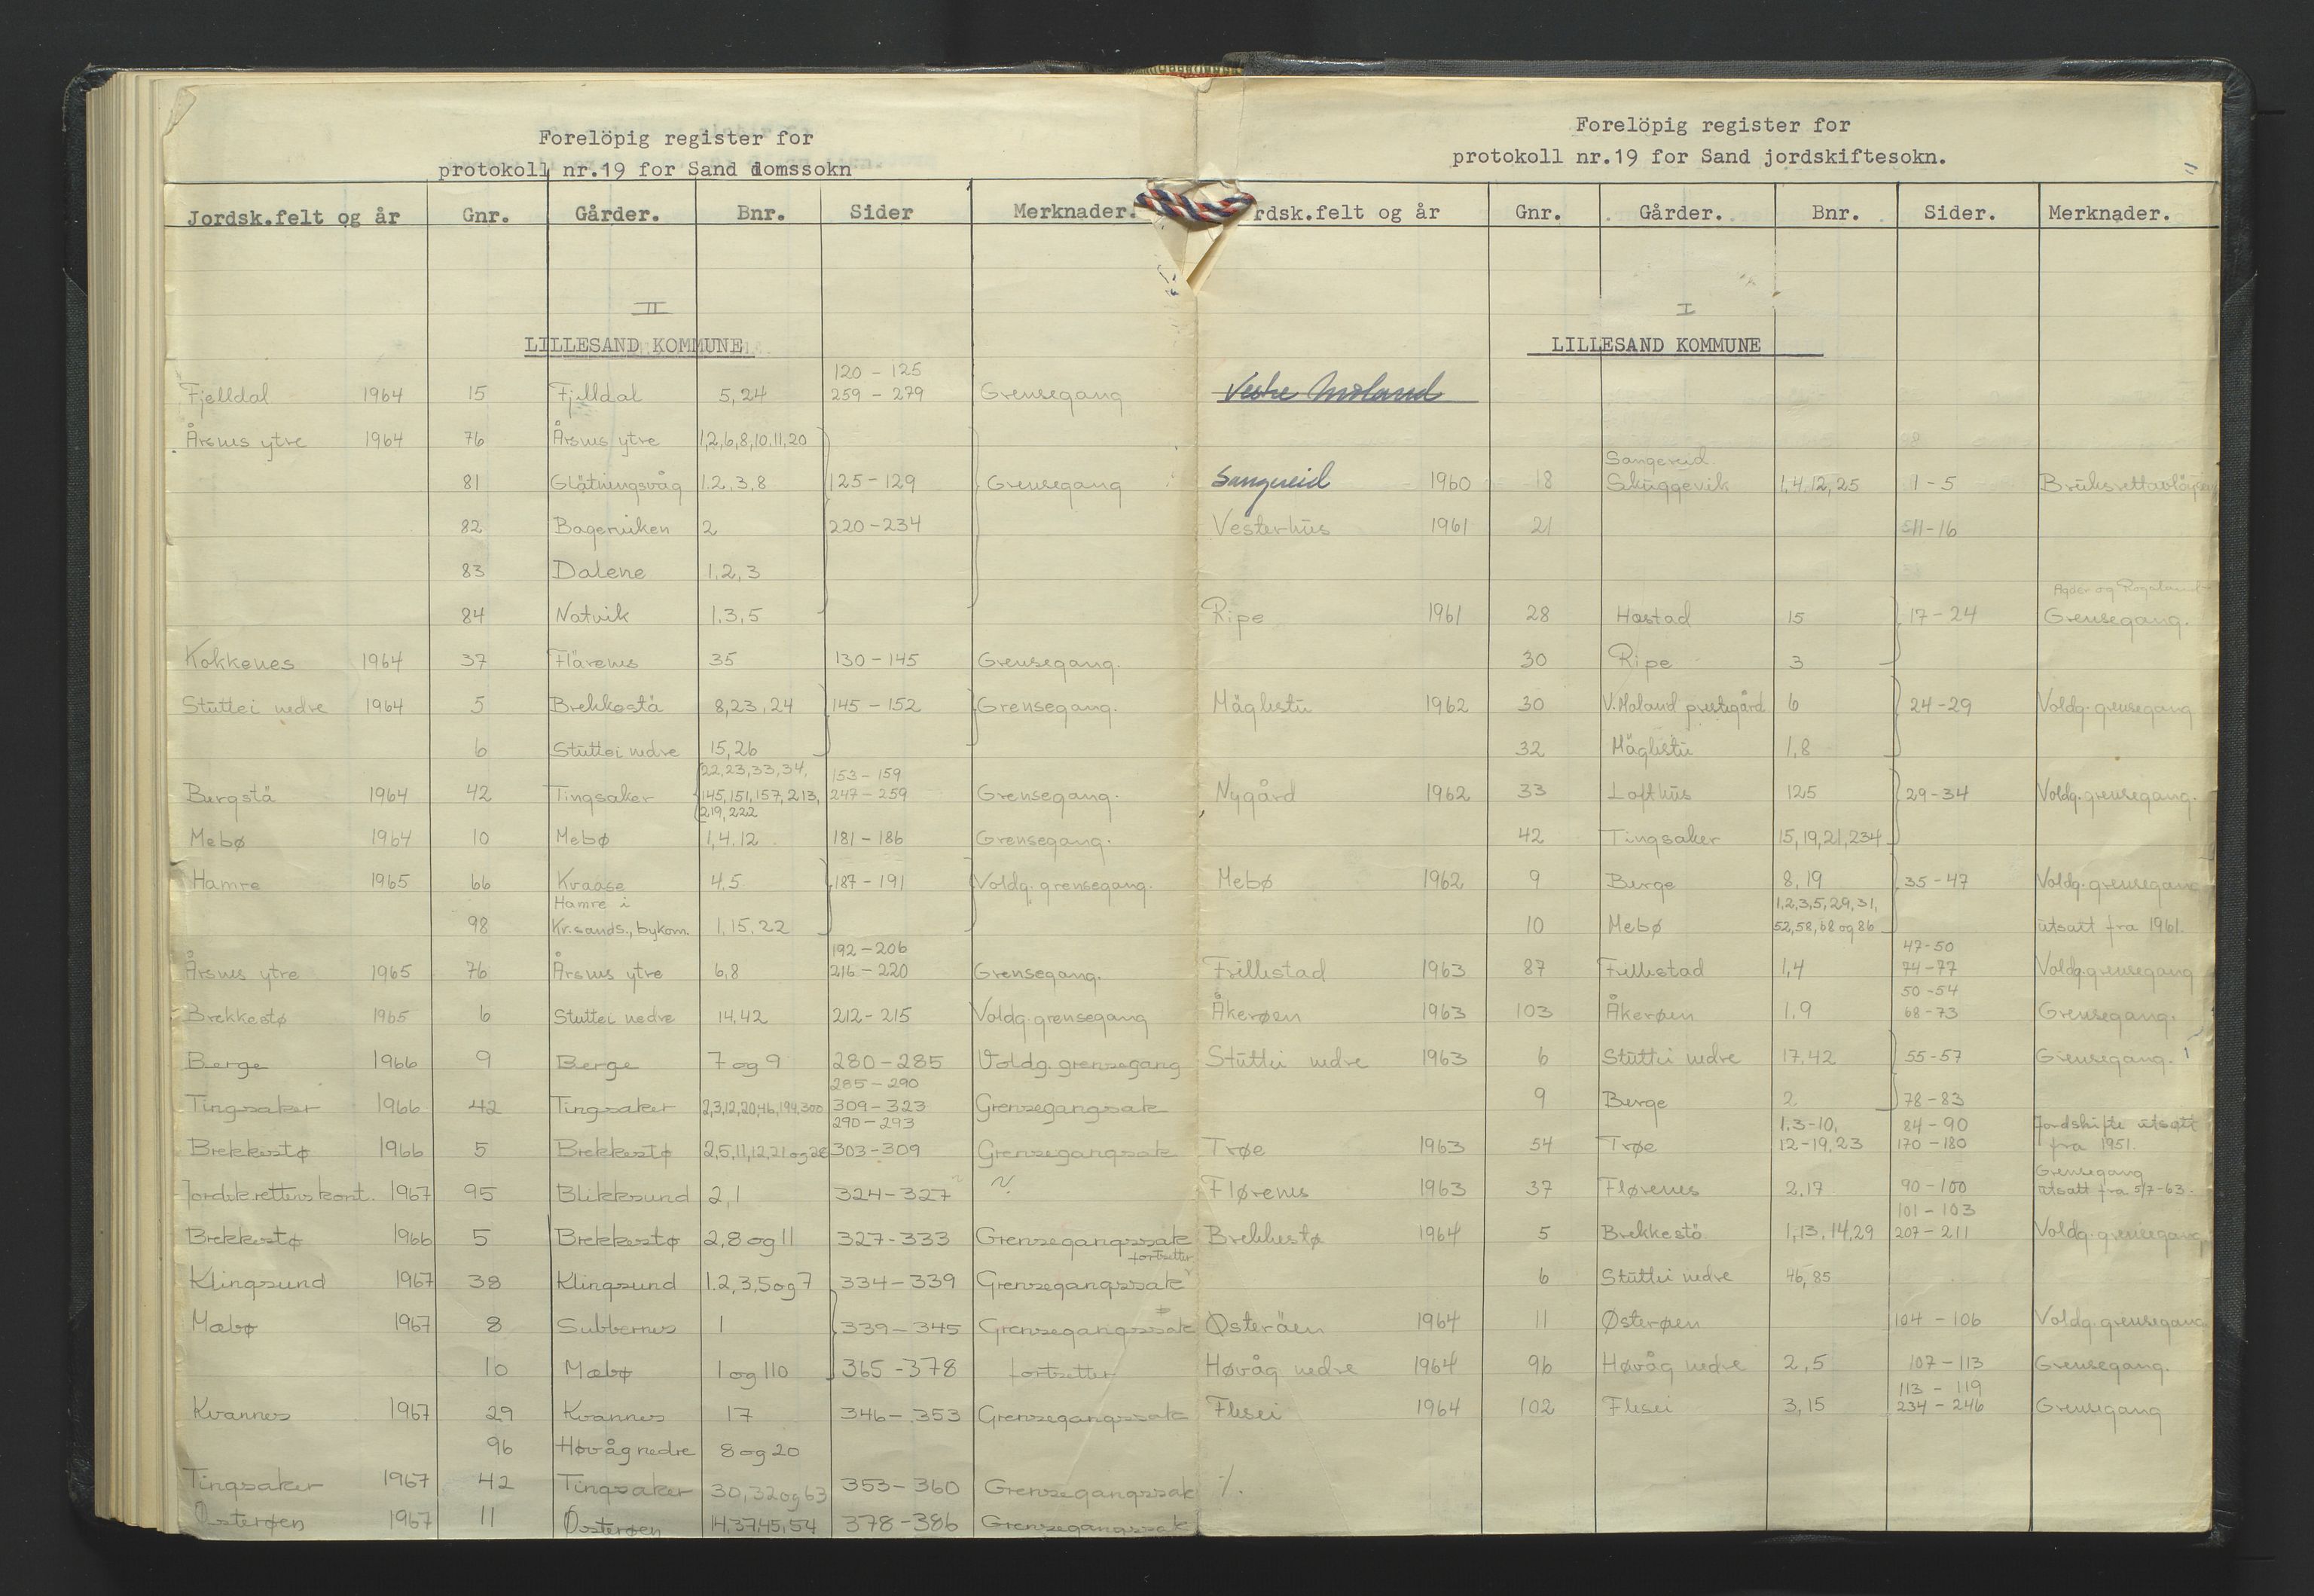 Forelöpig register for
protokoll nr.19 for Sand domssokn
Jordsk.felt og år Gnr. Gårder. Bnr. Sider Merknader.
II
LILLESAND KOMMUNE
120 - 125
Fjelldal 1964 15 Fjelldal 5,24 259 - 279 Grensegang
Årsnes ytre 1964 76 Årsnes ytre 1,2,6,8,10,11,20
81 Glätningsvåg 1.2,3,8 125-129 Grensegang
82 Bagerviken 2 220-234
83 Dalene 1,2,3
84 Natvik 1.3,5
Kokkenes 1964 37 Flärenes 35 130-145 Grensegang.
Stuttei nedre 1964 5 Brekkestä 8,23,24 145-152 Grensegang.
6 Stuttei nedre 15,26
22,23,33,34, 153-159
Bergstä 1964 42 Tingsaker 145,151,157,213, 247-259 Grensegang.
219,222
Mebø 1964 10 Mebø 1,4.12 181-186 Grensegang.
Hamre 1965 66 Kraase 4,5 187-191 Voldg. grensegang.
Hamre i
98 Kr.sands., bykom. 1,15,22
192-206
Årsnes ytre 1965 76 Årsnes ytre 6,8 216-220 Grensegang.
Brekkestø 1965 6 Stuttei nedre 14,42 212-215 Voldg. grensegang
Berge 1966 9 Berge 7 og 9 280-285 Voldg. grensegang
285-290
Tingsaker 1966 42 Tingsaker 2,3,12,20,46,194,300 309-323 Grensegangsak
290-293
Brekkestø 1966 5 Brekkestø 2,5,11,12,21 og 28 303-309 Grensegangsak
Jordsk.rettens kont. 1967 95 Blikksund 2,1 324-327
Brekkestø 1966 5 Brekkestø 2,8 og 11 327-333 Grensegangssak
fortsetter
Klingsund 1967 38 Klingsund 1.2,3,5 og 7 334-339 Grensegangssak
Mæbø 1967 8 Subbernes 1 339-345 Grensegangssak
10 Mæbø 1 og 110 365-378 fortsetter
Kvannes 1967 29 Kvannes 17 346-353 Grensegangssak
96 Høvåg nedre 8 og 20
Tingsaker 1967 42 Tingsaker 30,32 og 63 353-360 Grensegangssak
Østerøen 1967 11 Østerøen 14,37,45,54 378-386 Grensegangssak
Forelöpig register for
protokoll nr.19 for Sand jordskiftesokn.
rdsk.felt og år Gnr. Gårder. Bnr. Sider. Merknader.
I
LILLESAND KOMMUNE
Vestre Moland
Sangereid
Sangereid 1960 18 Skuggevik 1,4.12,25 1-5
Vesterhus 1961 21 11-16
Agder og Rogaland
Ripe 1961 28 Hæstad 15 17-24 Grensegang.
30 Ripe 3
Mäglestu 1962 30 V. Moland prestegård 6 24-29 Voldg. grensegang
32 Mäglestu 1,8
Nygård 1962 33 Lofthus 125 29-34 Voldg. grensegang.
42 Tingsaker 15,19,21,234
Mebø 1962 9 Berge 8,19 35-47 Voldg. grensegang
1,2,3,5,29,31,
10 Mebø 52,58,68 og 86 utsatt fra 1961.
47-50
Frillestad 1963 87 Frillestad 1,4 74-77 Voldg. grensegang
50-54
Åkerøen 1963 103 Åkerøen 1,9 68-73 Grensegang.
Stuttei nedre 1963 6 Stuttei nedre 17,42 55-57 Grensegang.
9 Berge 2 78-83
1.3-10, 84-90 Jordskifte utsatt
Trøe 1963 54 Trøe 12-19,23 170-180 fra 1951.
Grensegang
Flørenes 1963 37 Flørenes 2,17 90-100 utsatt fra 5/7-63.
101-103
Brekkestø 1964 5 Brekkestö 1,13,14,29 207-211 Voldg. grensegang
6 Stuttei nedre 46,85
Østeräen 1964 11 Østerøen 104-106 Voldg. grensegang
Høvåg nedre 1964 96 Høvåg nedre 2,5 107-113 Grensegang.
113 - 119
Flesei 1964 102 Flesei 3,15 234-246 Grensegang